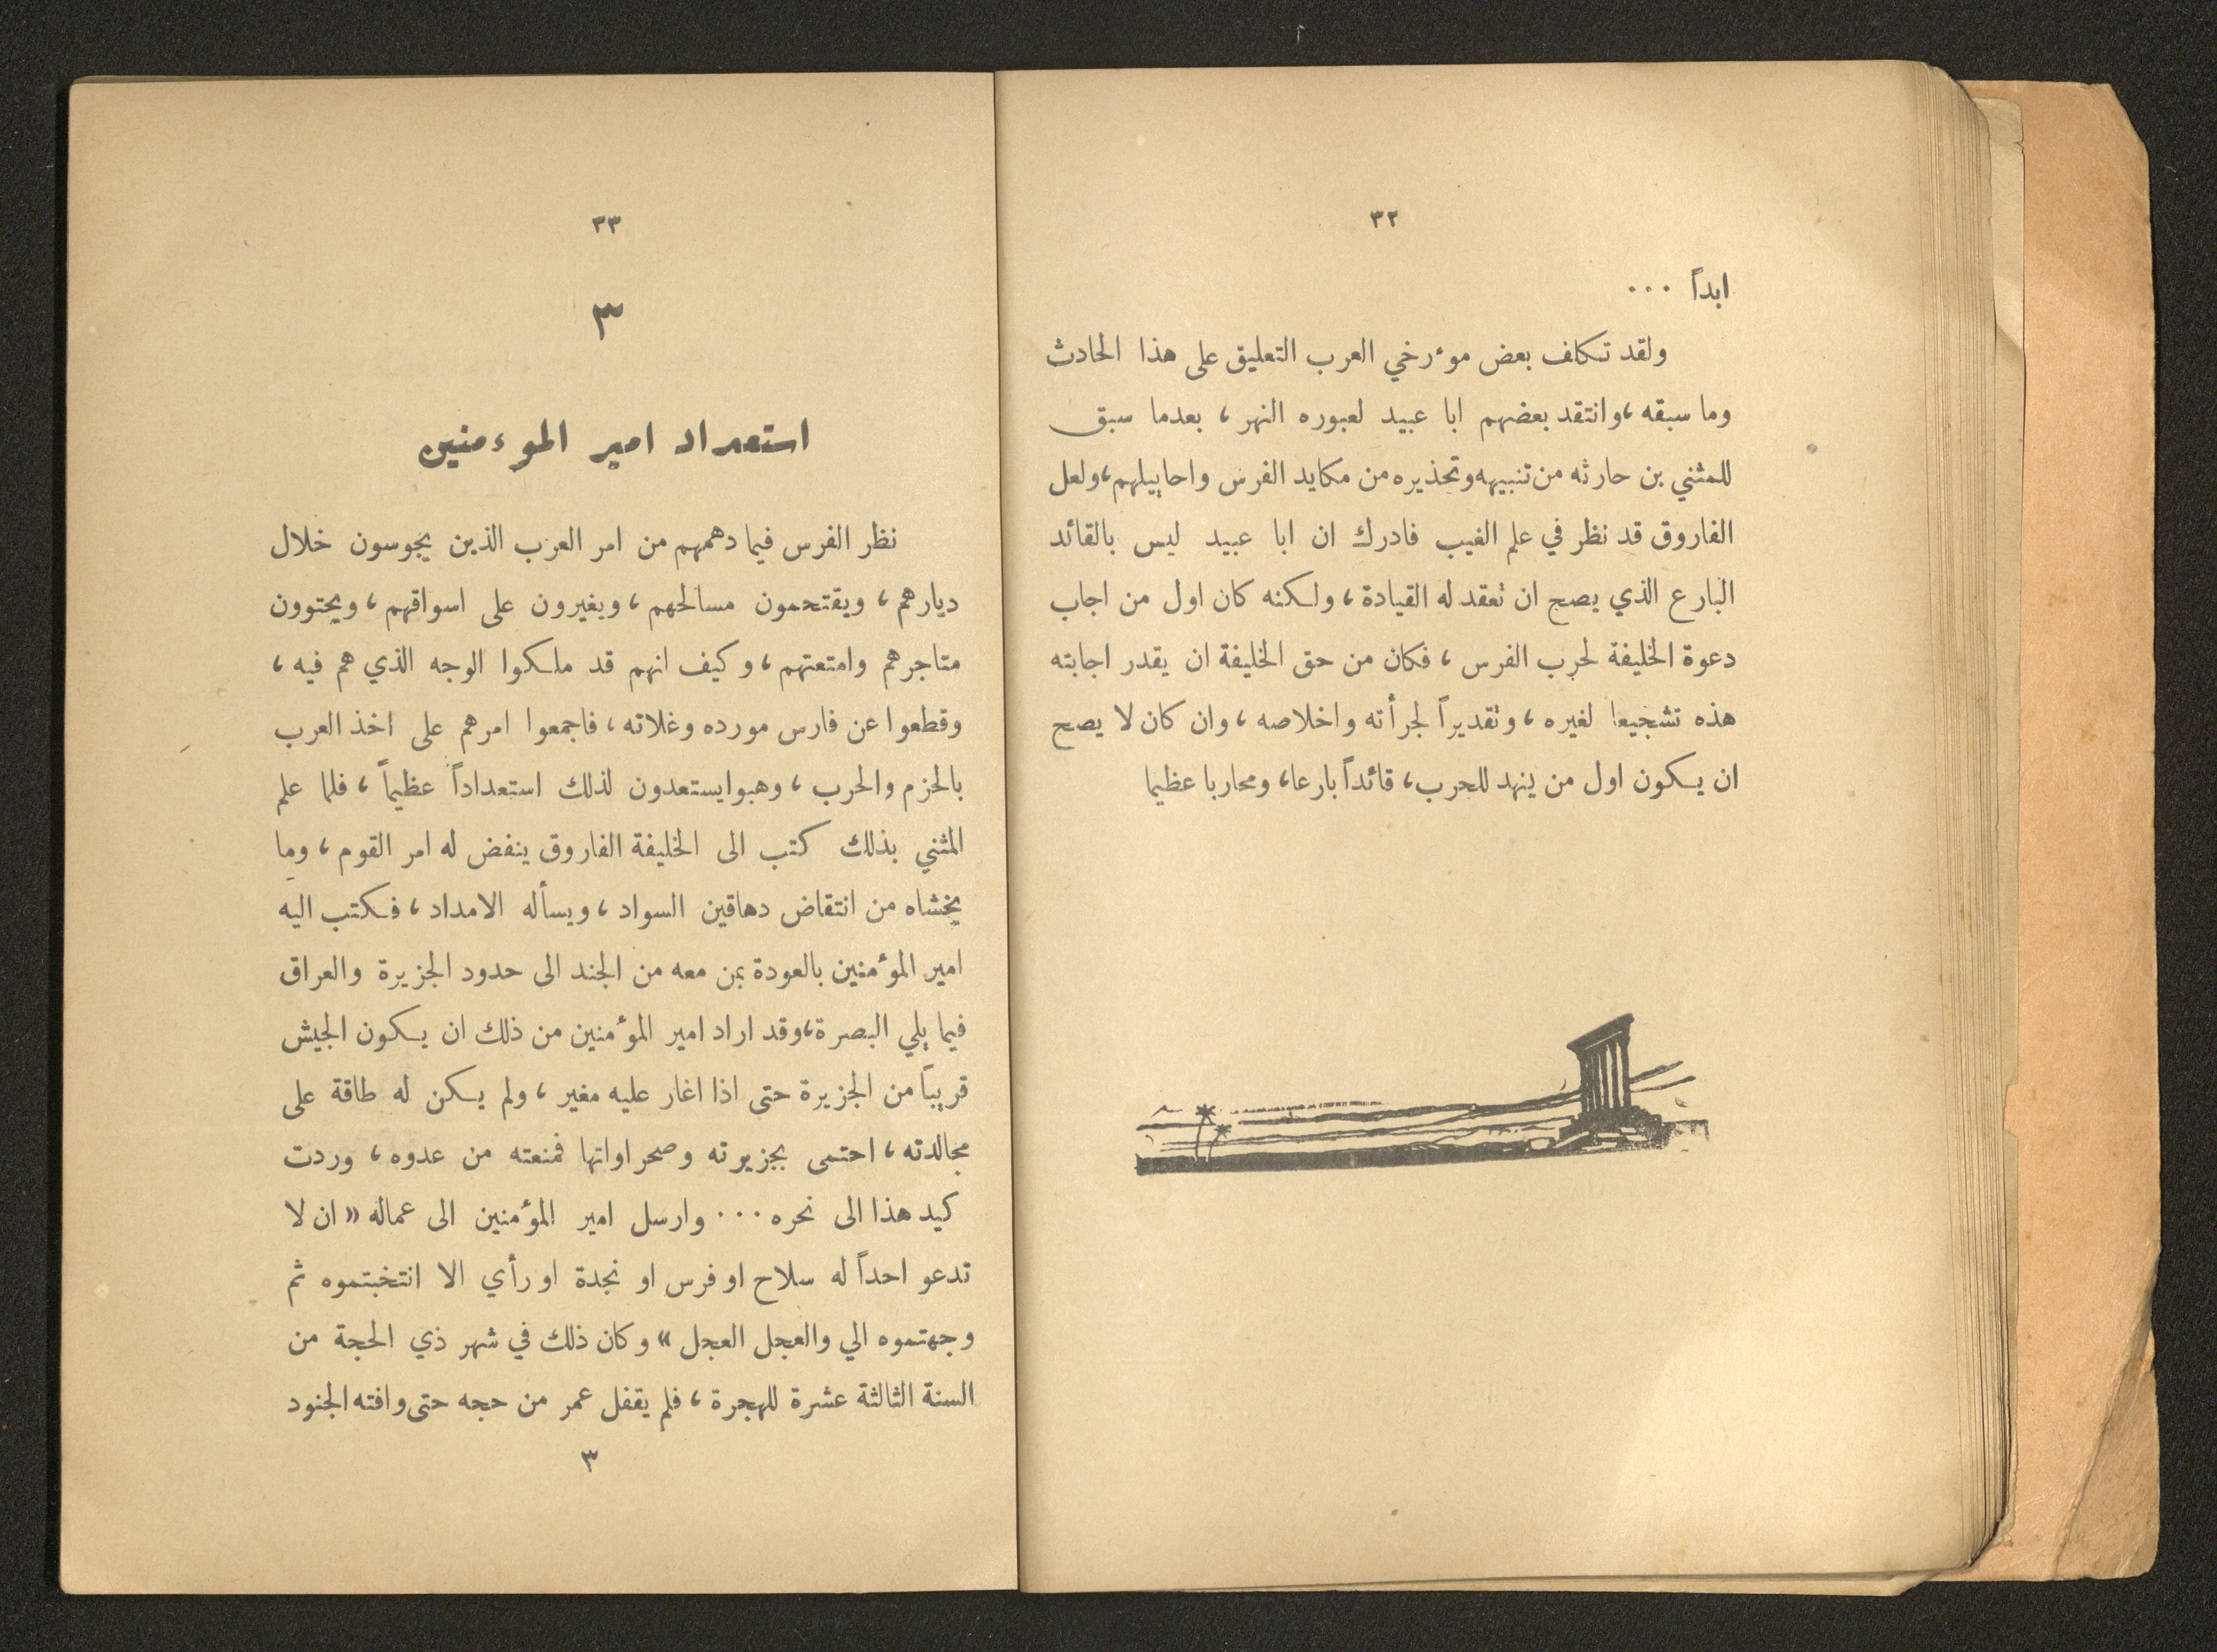 ٣٢
ابداً ...
ولقد تكلف بعض موءرخي العرب التعليق على هذا الحادث
وما سبقه ، وانتقد بعضهم ابا عبيد لعبوره النهر ، بعدما سبق
للمثني بن حارثه من تنبيهه وتحذيره من مكايد الفرس واحاييلهم ، ولعل
الفاروق قد نظر في علم الغيب فادرك ان ابا عبيد ليس بالقائد
البارع الذي يصح ان تعقد له القيادة ، ولكنه كان اول من اجاب
دعوة الخليفة لحرب الفرس ، فكان من حق الخليفة ان يقدر اجابته
هذه تشجيعا لغيره ، وتقديراً لجرأته واخلاصه ، وان كان لا يصح
ان يكون اول من ينهد للحرب ، قائداً بارعا ، ومحاربا عظيما
٣٣
٣
استعداد امير الموءمنين
نظر الفرس فيما دهمهم من امر العرب الذين يجوسون خلال
ديارهم ، ويقتحمون مسالحهم ، ويغيرون على اسواقهم ، ويحتوون
متاجرهم وامتعتهم ، وكيف انهم قد ملكوا الوجه الذي هم فيه ،
وقطعوا عن فارس مورده وغلاته ، فاجمعوا امرهم على اخذ العرب
بالحزم والحرب ، وهبوا يستعدون لذلك استعداداً عظيماً ، فلما علم
المثني بذلك كتب الى الخليفة الفاروق ينفض له امر القوم ، وما
يخشاه من انتقاض دهاقين السواد ، ويسأله الامداد ، فكتب اليه
امير المؤمنين بالعودة بمن معه من الجند الى حدود الجزيرة والعراق
فيما يلي البصرة ، وقد اراد امير المؤمنين من ذلك ان يكون الجيش
قريباً من الجزيرة حتى اذا اغار عليه مغير ، ولم يكن له طاقة على
مجالدته ، احتمى بجزيرته وصحراواتها فمنعته من عدوه ، وردت
كيد هذا الى نحره ... وارسل امير المؤمنين الى عماله « ان لا
تدعو احداً له سلاح او فرس او نجدة او رأي الا انتخبتموه ثم
وجهتموه الي والعجل العجل » وكان ذلك في شهر ذي الحجة من
السنة الثالثة عشرة للهجرة ، فلم يقفل عمر من حجه حتى وافته الجنود
٣